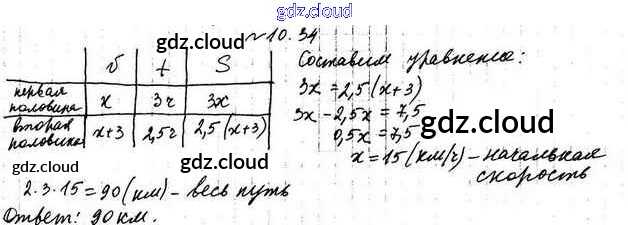 gdz.cloud
№ 10.34
gdz.cloud
v t S
первая половина x 3ч 3x
вторая половина x+3 2,5ч 2,5(x+3)
gdz.cloud
Составим уравнение:
3x = 2,5(x+3)
gdz.cloud
3x - 2,5x = 7,5
0,5x = 7,5
gdz.cloud
x = 15 (км/ч) - начальная скорость
gdz.cloud
gdz.cloud
2·3·15 = 90 (км) - весь путь
gdz.cloud
Ответ: 90 км.
gdz.cloud